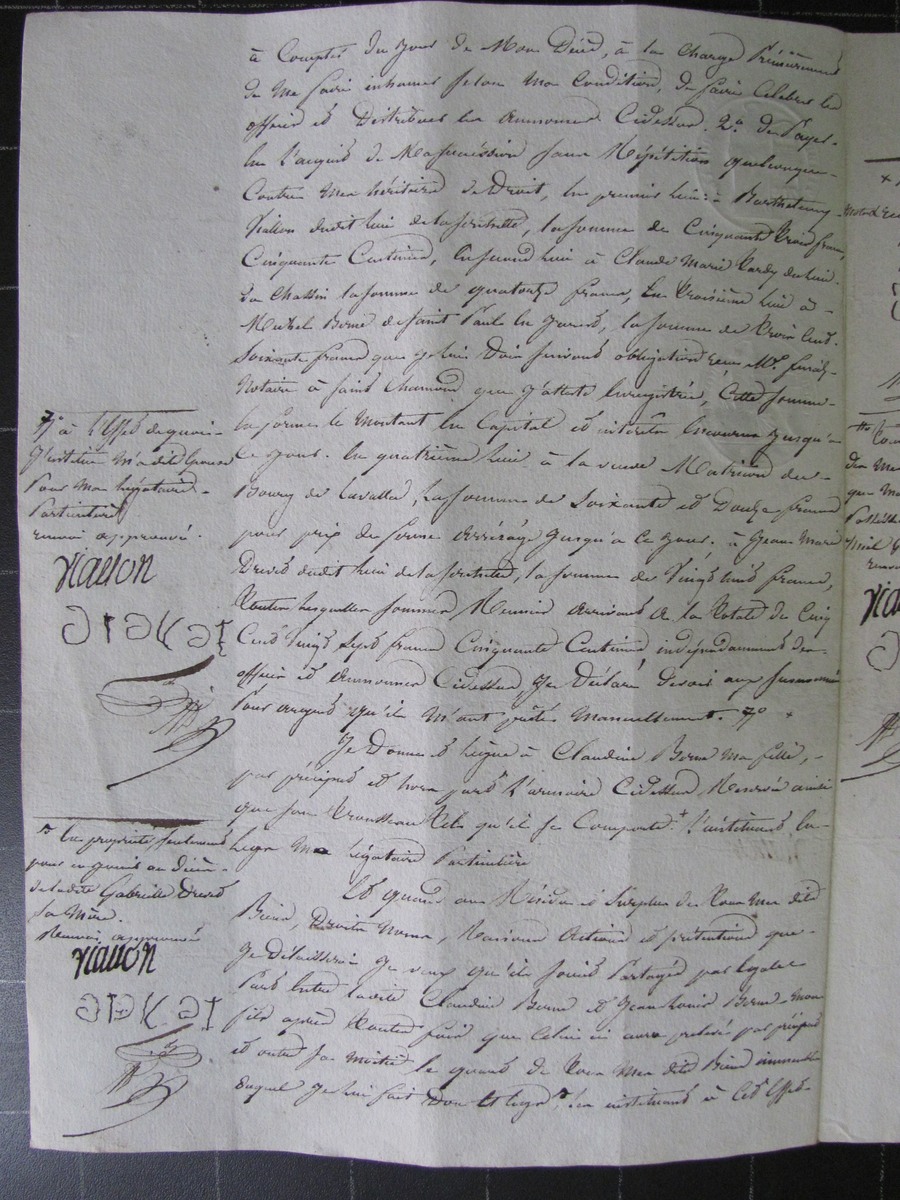 à Compter du jour de Mon Décès, à la Charge Premièrement
de Me faire inhumer selon Ma Condition, de faire Célébrer les
offices et Distribuer les Aumones Cidessus. 2° de Payer
en l'acquis de Ma succession sans Répétition quelconque
Contre Mes héritiers de Droit, en premier Lieu à Barthelemy
Vialion dudit lieu de la , la somme de Cinquante Trois francs
Cinquante Centimes, en second Lieu à Claude Marie Vardy du lieu
La Chassin la somme de quatorze francs, En Troisième Lieu à
Michel Berne de saint Paul en Jarret, la somme de Trois Cents
soixante francs que je lui Dois suivant obligation reçue Me.
Notaire à saint Chamond que J'atteste Enregistrée, Cette somme
en formes le Montant en Capital et intérêts Encourus Jusqu'à
Ce jour. En quatrième Lieu à la veuve Matricon du
Bourg de Lavalla, La somme de Soixante et Douze francs
pour prix de ferme Arrérages Jusqu'à Ce jour. à Jean Marie
Drevet dudit Lieu de la , la somme de Vingt huit francs,
Toutes lesquelles sommes Réunies Arrivent A la Totale de Cinq
Cent Vingt sept francs Cinquante Centimes indépendamment des
offices et Aumones Cidessus, Je Déclare Devoir aux susnommés
Pour argent qu'ils M'ont prêtés Manuellement. 7° +
Je Donne et Lègue à Claudine Berne Ma fille,
par préciput et hors part L'armoire Cidessus Réservée ainsi
que son Trousseau Tels qu'il se Comporte + L'instituant en
Legs Ma Légataire Particulière
Et quand au Résidu et Surplus de Tous Mes dits
Biens, Droits Noms, Raisons Actions et prétentions que
Je Délaisserai Je veux qu'ils soient Partagés par égales
Parts Entre ladite Claudine Berne et Jean Louis Berne Mon
fils après Toutes fois que Celui ci aura prélevé par préciput
et outre sa Moitié le quart de Tous Mes dits Biens immeubles
Duquel Je lui fais Don Et legs l'en instituant à Cet Effet
7° à l'Effet de quoi
J'institue M'a dite Epouse
Pour Ma Légataire
Particulière
renvoi approuvé.
Vialion
la propriété seulement
pour en jouir au Décès
de ladite Gabrielle Drevet
sa Mère.
Renvoi approuvé
Vialion